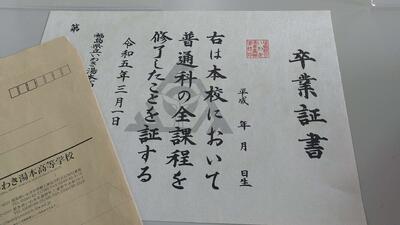 卒業証書
平成 年 月 日生
右は本校において
普通科の全課程を
修了したことを証する
令和五年三月一日
福島県立いわき湯本
第
わき湯本高等学校